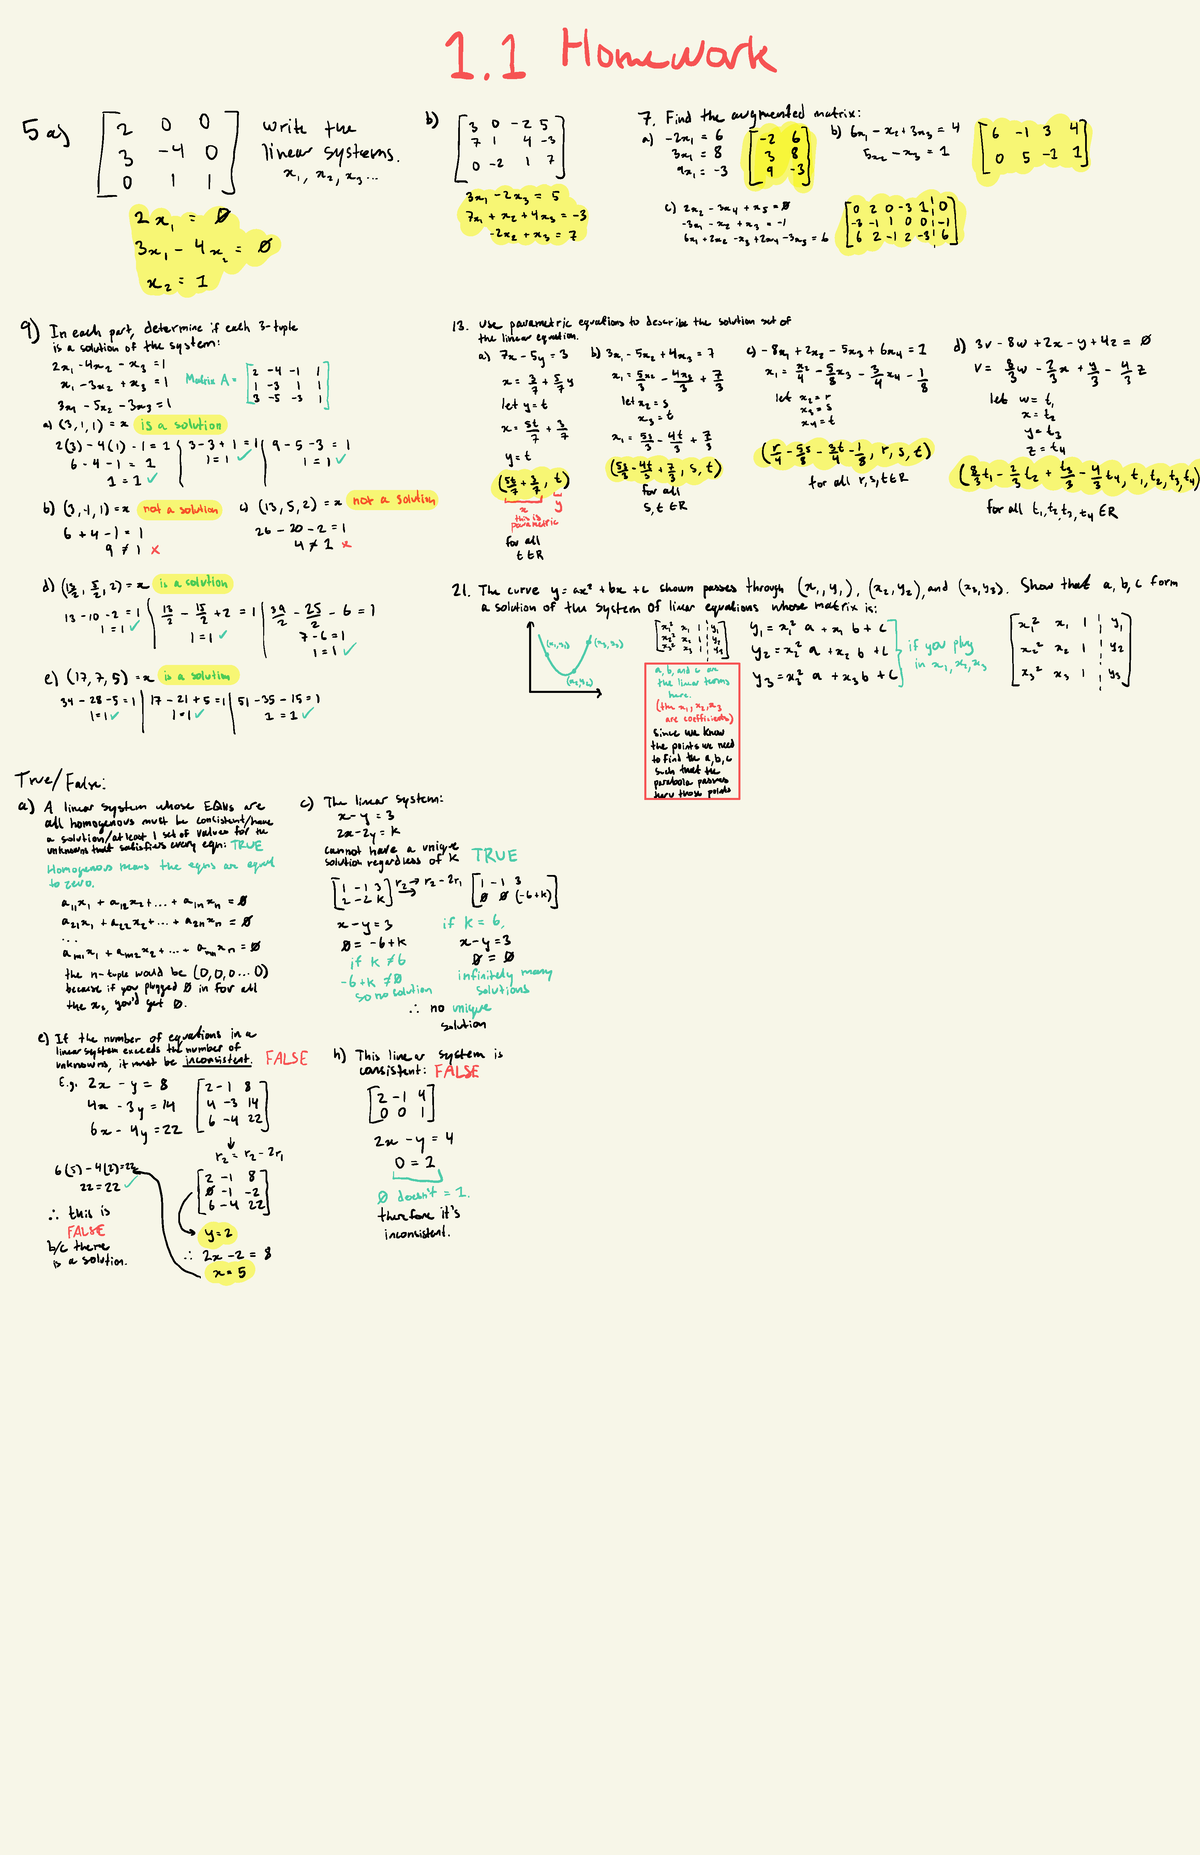 1.1 Homework
5 a) [2 0 0
3 -4 0
0 1 1]
write the
linear systems.
x₁, x₂, x₃...
2x₁ = 0
3x₁ - 4x₂ = 0
x₂ = 1
b) [3 0 -2 5
7 1 4 -3
0 -2 1 7]
3x₁ - 2x₃ = 5
7x₁ + x₂ + 4x₃ = -3
-2x₂ + x₃ = 7
7. Find the augmented matrix:
a) -2x₁ = 6
3x₁ = 8
9x₁ = -3
[-2 6
3 8
9 -3]
b) 6x₁ - x₂ + 3x₃ = 4
5x₂ - x₃ = 1
[6 -1 3 4
0 5 -1 1]
c) 2x₂ - 3x₄ + x₅ = 0
-3x₁ - x₂ + x₃ = -1
6x₁ + 2x₂ - x₃ + 2x₄ - 3x₅ = 6
[0 2 0 -3 1 | 0
-3 -1 1 0 0 | -1
6 2 -1 2 -3 | 6]
9) In each part, determine if each 3-tuple
is a solution of the system:
2x₁ - 4x₂ - x₃ = 1
x₁ - 3x₂ + x₃ = 1
3x₁ - 5x₂ - 3x₃ = 1
Matrix A = [2 -4 -1 1
1 -3 1 1
3 -5 -3 1]
a) (3, 1, 1) = x is a solution
2(3) - 4(1) - 1 = 1 | 3 - 3 + 1 = 1 | 9 - 5 - 3 = 1
6 - 4 - 1 = 1 1 = 1 ✓ 1 = 1 ✓
1 = 1 ✓
b) (3, -1, 1) = x not a solution
6 + 4 - 1 = 1
9 ≠ 1 x
c) (13, 5, 2) = x not a solution
26 - 20 - 2 = 1
4 ≠ 1 x
d) (13/2, 5/2, 2) = x is a solution
13 - 10 - 2 = 1 | 13/2 - 15/2 + 2 = 1 | 39/2 - 25/2 - 6 = 1
1 = 1 ✓ 1 = 1 ✓ 7 - 6 = 1
1 = 1 ✓
e) (17, 7, 5) = x is a solution
34 - 28 - 5 = 1 | 17 - 21 + 5 = 1 | 51 - 35 - 15 = 1
1 = 1 ✓ 1 = 1 ✓ 1 = 1 ✓
13. use parametric equations to describe the solution set of
the linear equation.
a) 7x - 5y = 3
x = 3/7 + 5/7 y
let y = t
x = 5t/7 + 3/7
y = t
(5t/7 + 3/7, t)
x y
this is
parametric
for all
t ∈ R
b) 3x₁ - 5x₂ + 4x₃ = 7
x₁ = 5x₂/3 - 4x₃/3 + 7/3
let x₂ = s
x₃ = t
x₁ = 5s/3 - 4t/3 + 7/3
(5s/3 - 4t/3 + 7/3, s, t)
for all
s, t ∈ R
c) -8x₁ + 2x₂ - 5x₃ + 6x₄ = 1
x₁ = x₂/4 - 5/8 x₃ - 3/4 x₄ - 1/8
let x₂ = r
x₃ = s
x₄ = t
(r/4 - 5s/8 - 3t/4 - 1/8, r, s, t)
for all r, s, t ∈ R
d) 3v - 8w + 2x - y + 4z = 0
v = 8/3 w - 2/3 x + y/3 - 4/3 z
let w = t₁
x = t₂
y = t₃
z = t₄
(8/3 t₁ - 2/3 t₂ + t₃/3 - 4/3 t₄, t₁, t₂, t₃, t₄)
for all t₁, t₂, t₃, t₄ ∈ R
21. The curve y = ax² + bx + c shown passes through (x₁, y₁), (x₂, y₂), and (x₃, y₃). Show that a, b, c form
a solution of the system of linear equations whose matrix is:
(x₁, y₁)
(x₃, y₃)
(x₂, y₂)
[x₁² x₁ 1 | y₁
x₂² x₂ 1 | y₂
x₃² x₃ 1 | y₃]
a, b, and c are
the linear terms
here.
(the x₁, x₂, x₃
are coefficients)
Since we know
the points we need
to find the a, b, c
such that the
parabola passes
thru those points
y₁ = x₁² a + x₁ b + c
y₂ = x₂² a + x₂ b + c
y₃ = x₃² a + x₃ b + c
if you plug
in x₁, x₂, x₃
[x₁² x₁ 1 | y₁
x₂² x₂ 1 | y₂
x₃² x₃ 1 | y₃]
True/False:
a) A linear system whose EQNs are
all homogenous must be consistent/have
a solution/at least 1 set of values for the
unknowns that satisfies every eqn: TRUE
Homogenous means the eqns are equal
to zero.
a₁₁x₁ + a₁₂x₂ + ... + a₁ₙxₙ = 0
a₂₁x₁ + a₂₂x₂ + ... + a₂ₙxₙ = 0
...
aₘ₁x₁ + aₘ₂x₂ + ... + aₘₙxₙ = 0
the n-tuple would be (0, 0, 0 ... 0)
because if you plugged 0 in for all
the xₛ, you'd get 0.
c) The linear system:
x - y = 3
2x - 2y = k
cannot have a unique
solution regardless of k TRUE
[1 -1 3
2 -2 k] r₂ → r₂ - 2r₁ [1 -1 3
0 0 (-6+k)]
x - y = 3
0 = -6 + k
if k ≠ 6
-6 + k ≠ 0
so no solution
if k = 6,
x - y = 3
0 = 0
infinitely many
solutions
∴ no unique
solution
e) If the number of equations in a
linear system exceeds the number of
unknowns, it must be inconsistent. FALSE
E.g. 2x - y = 8
4x - 3y = 14
6x - 4y = 22
[2 -1 8
4 -3 14
6 -4 22]
↓
r₂ = r₂ - 2r₁
[2 -1 8
0 -1 -2
6 -4 22]
y = 2
∴ 2x - 2 = 8
x = 5
6(5) - 4(2) = 22
22 = 22 ✓
∴ this is
FALSE
b/c there
is a solution.
h) This linear system is
consistent: FALSE
[2 -1 4
0 0 1]
2x - y = 4
0 = 1
0 doesn't = 1.
therefore it's
inconsistent.